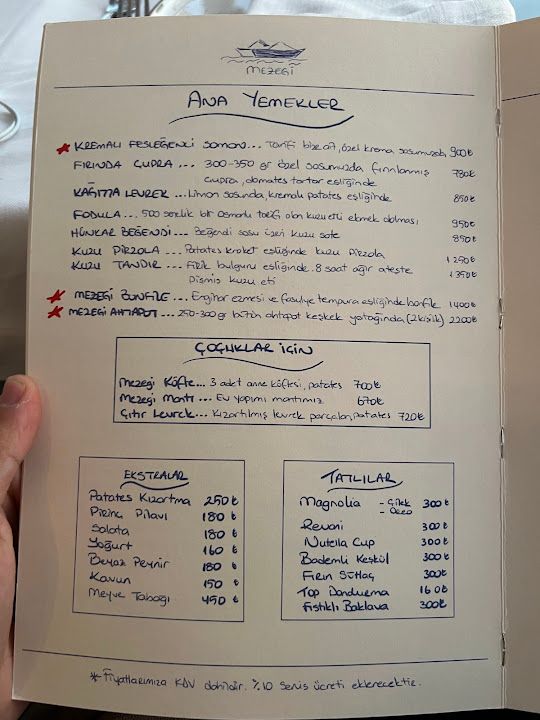 MEZEGİ
ANA YEMEKLER
* KREMALI FESLEĞENLİ SOMON... Tarifi bize ait, özel krema sosumuzda 900₺
FIRINDA ÇUPRA ... 300-350 gr özel sosumuzda fırınlanmış 780₺
çupra, domates tartar eşliğinde
KAĞITTA LEVREK ... Limon sosunda, kremalı patates eşliğinde 850₺
FODULA... 500 senelik bir osmanlı tarifi olan kuzu etli ekmek dolması 950₺
HÜNKAR BEĞENDİ... Beğendi sosu üzeri kuzu sote 850₺
KUZU PİRZOLA ... Patates kroket eşliğinde kuzu pirzola 1250₺
KUZU TANDIR ... Firik bulguru eşliğinde 8 saat ağır ateşte 1350₺
pişmiş kuzu eti
* MEZEGİ BONFİLE... Enginar ezmesi ve fasulye tempura eşliğinde bonfile 1400₺
* MEZEGİ AHTAPOT... 250-300gr bütün ahtapot keşkek yatağında (2 kişilik) 2200₺
ÇOÇUKLAR İÇİN
Mezegi Köfte... 3 adet anne köftesi, patates 700₺
Mezegi Mantı ... Ev yapımı mantımız 670₺
Çıtır Levrek... Kızartılmış levrek parçaları, patates 720₺
EKSTRALAR
Patates Kızartma 250₺
Pirinç Pilavı 180₺
Salata 180₺
Yoğurt 160₺
Beyaz Peynir 180₺
Kavun 150₺
Meyve Tabağı 450₺
TATLILAR
Magnolia - Çilek 300₺
- Oreo
Revani 300₺
Nutella Cup 300₺
Bademli Keşkül 300₺
Fırın Sütlaç 300₺
Top Dondurma 160₺
Fıstıklı Baklava 300₺
* Fiyatlarımıza KDV dahildir. %10 servis ücreti eklenecektir.